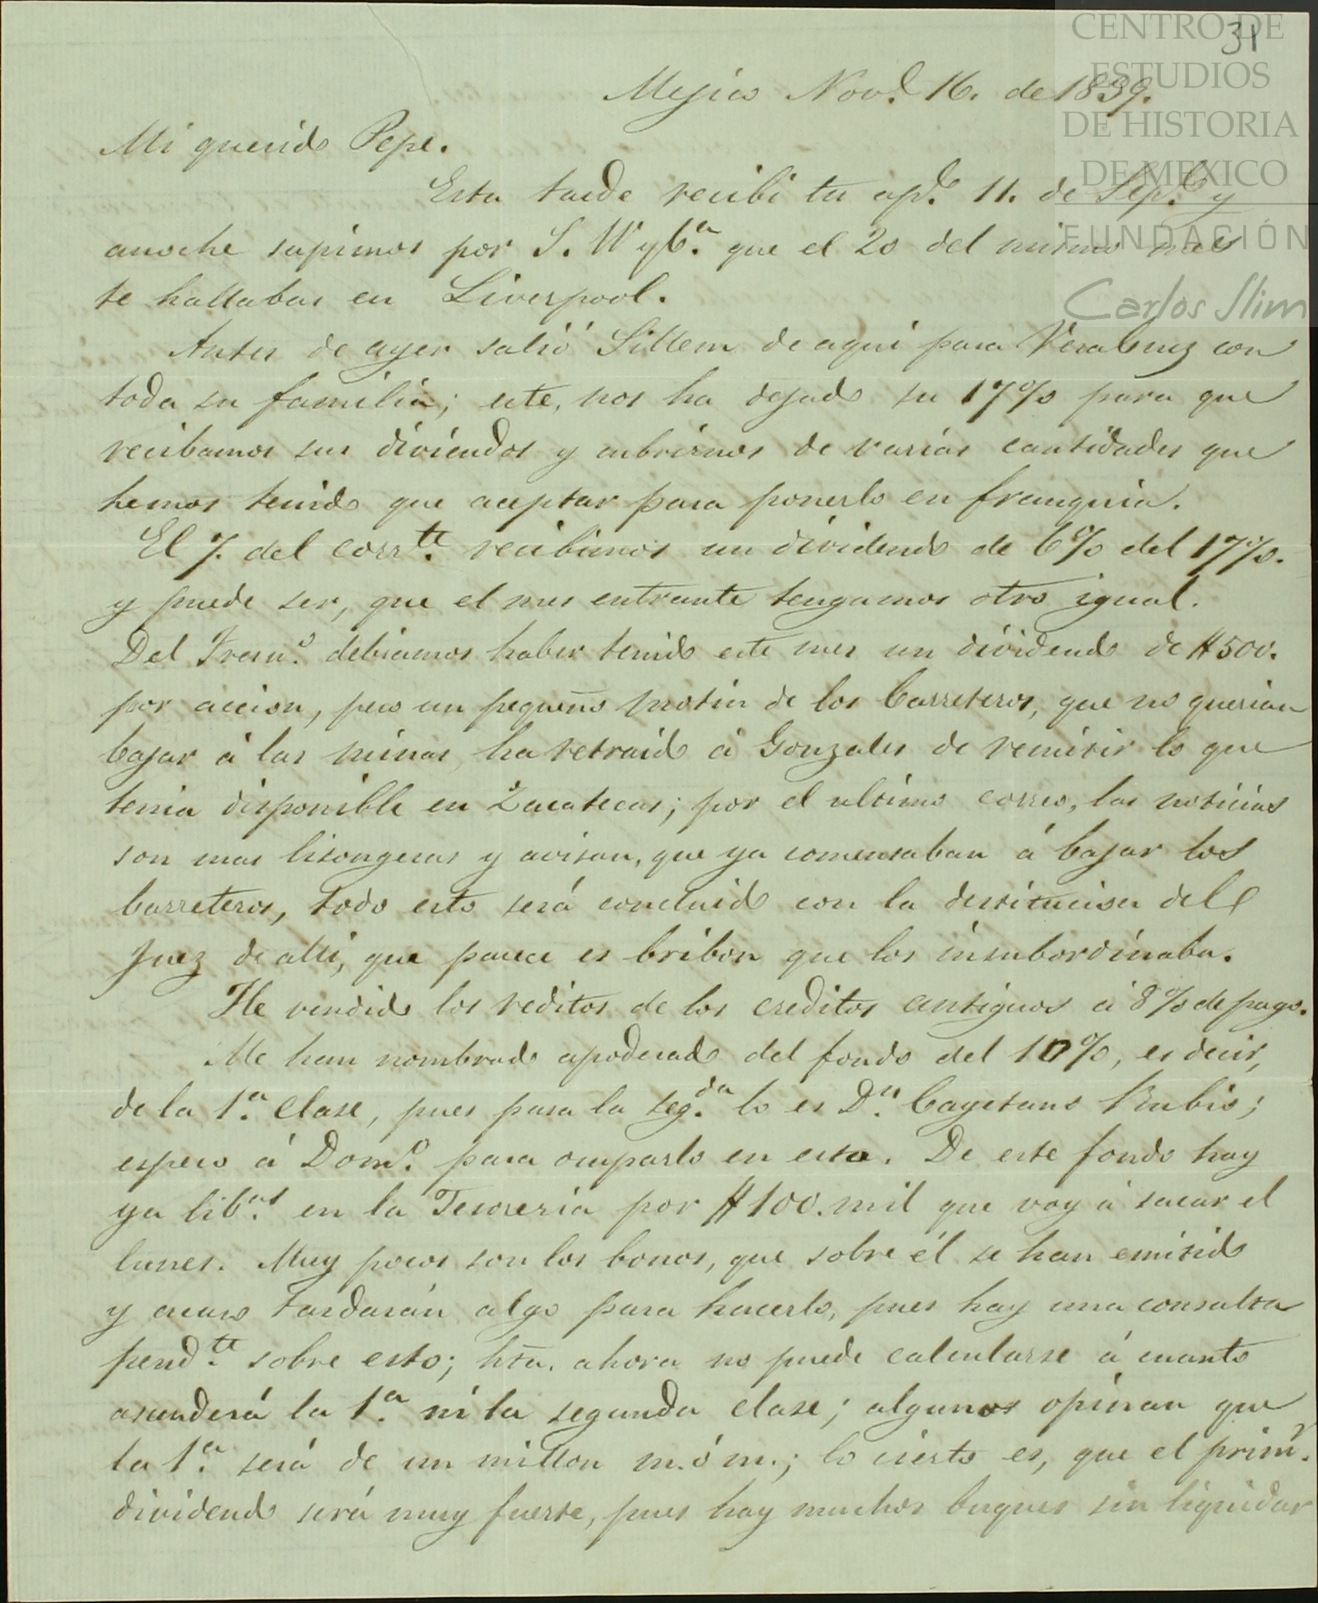 31
CENTRO DE
ESTUDIOS
DE HISTORIA
DE MEXICO
FUNDACIÓN
Carlos Slim
Mejico Nov.e 16. de 1839.
Mi querido Pepe.
Esta tarde recibi tu ap.da 11. de Sep.e y
anoche supimos por S. W y C.a que el 20 del mismo mes
te hallabas en Liverpool.
Antes de ayer salió Sillem de aqui para Vera Cruz con
toda su familia; este, nos ha dejado su 17% para que
recibamos sus dividendos y cubrirnos de varias cantidades que
hemos tenido que aceptar para ponerlo en franquia.
El 7. del corr.te recibimos un dividendo de 6% del 17%.
y puede ser, que el mes entrante tengamos otro igual.
Del Fresn.o debiamos haber tenido este mes un dividendo de $500.
por accion, pero un pequeño motin de los Barreteros, que no querian
bajar á las minas, ha retraido á Gonzales de remitir lo que
tenia disponible en Zacatecas; por el ultimo correo, las noticias
son mas lisongeras y avisan, que ya comensaban á bajar los
barreteros, todo esto será concluido con la destitucion del
Juez de alli, que parece es bribon que los insubordinaba.
He vendido los reditos de los creditos antiguos á 8% de pago.
Me han nombrado apoderado del fondo del 10%, es decir,
de la 1.a clase, pues para la seg.da lo es D.n Cayetano Rubio;
espero á Dom.o para ocuparlo en esto. De este fondo hay
ya lib.as en la Tesoreria por $100. mil que voy á sacar el
lunes. Muy pocos son los bonos, que sobre él se han emitido
y acaso tardarán algo para hacerlo, pues hay una consulta
pend.te sobre esto; hta. ahora no puede calcularse á cuanto
ascenderá la 1.a ni la segunda clase; algunos opinan que
la 1.a será de un millon m. ó m.; lo cierto es, que el prim.r
dividendo será muy fuerte, pues hay muchos buques sin liquidar